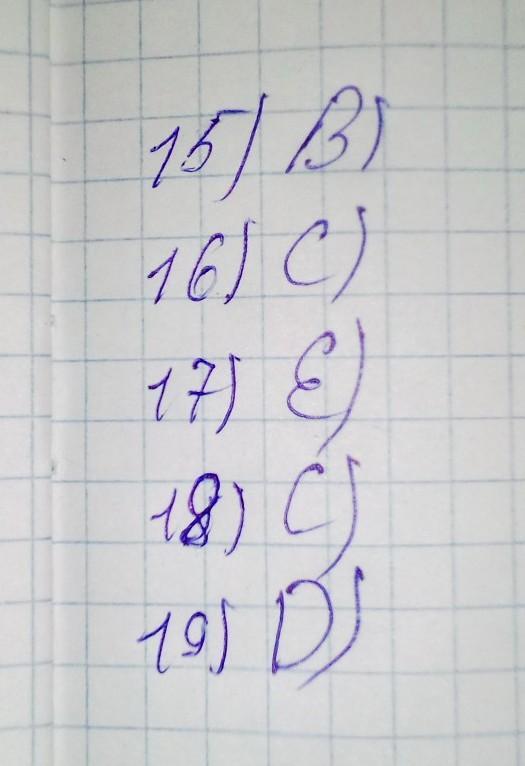 15) B)
16) C)
17) E)
18) C)
19) D)